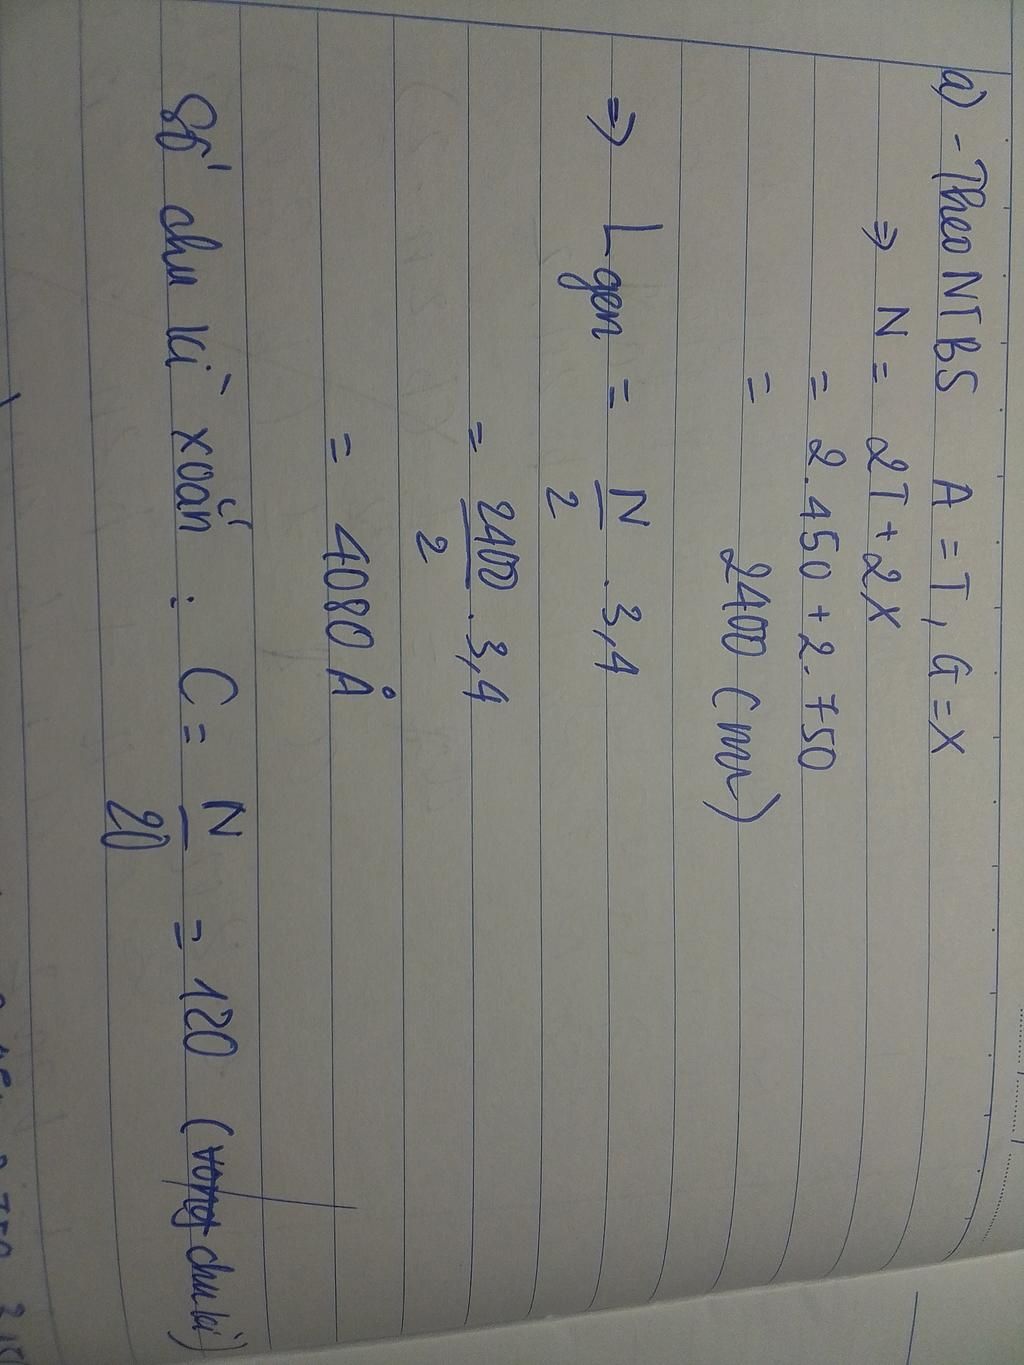 a) - Theo NTBS A = T, G = X
⇒ N = 2T + 2X
= 2.450 + 2.750
= 2400 (nu)
⇒ Lgen = N/2 . 3,4
= 2400/2 . 3,4
= 4080 Å
Số chu kì xoắn : C = N/20 = 120 (vong chu kì)